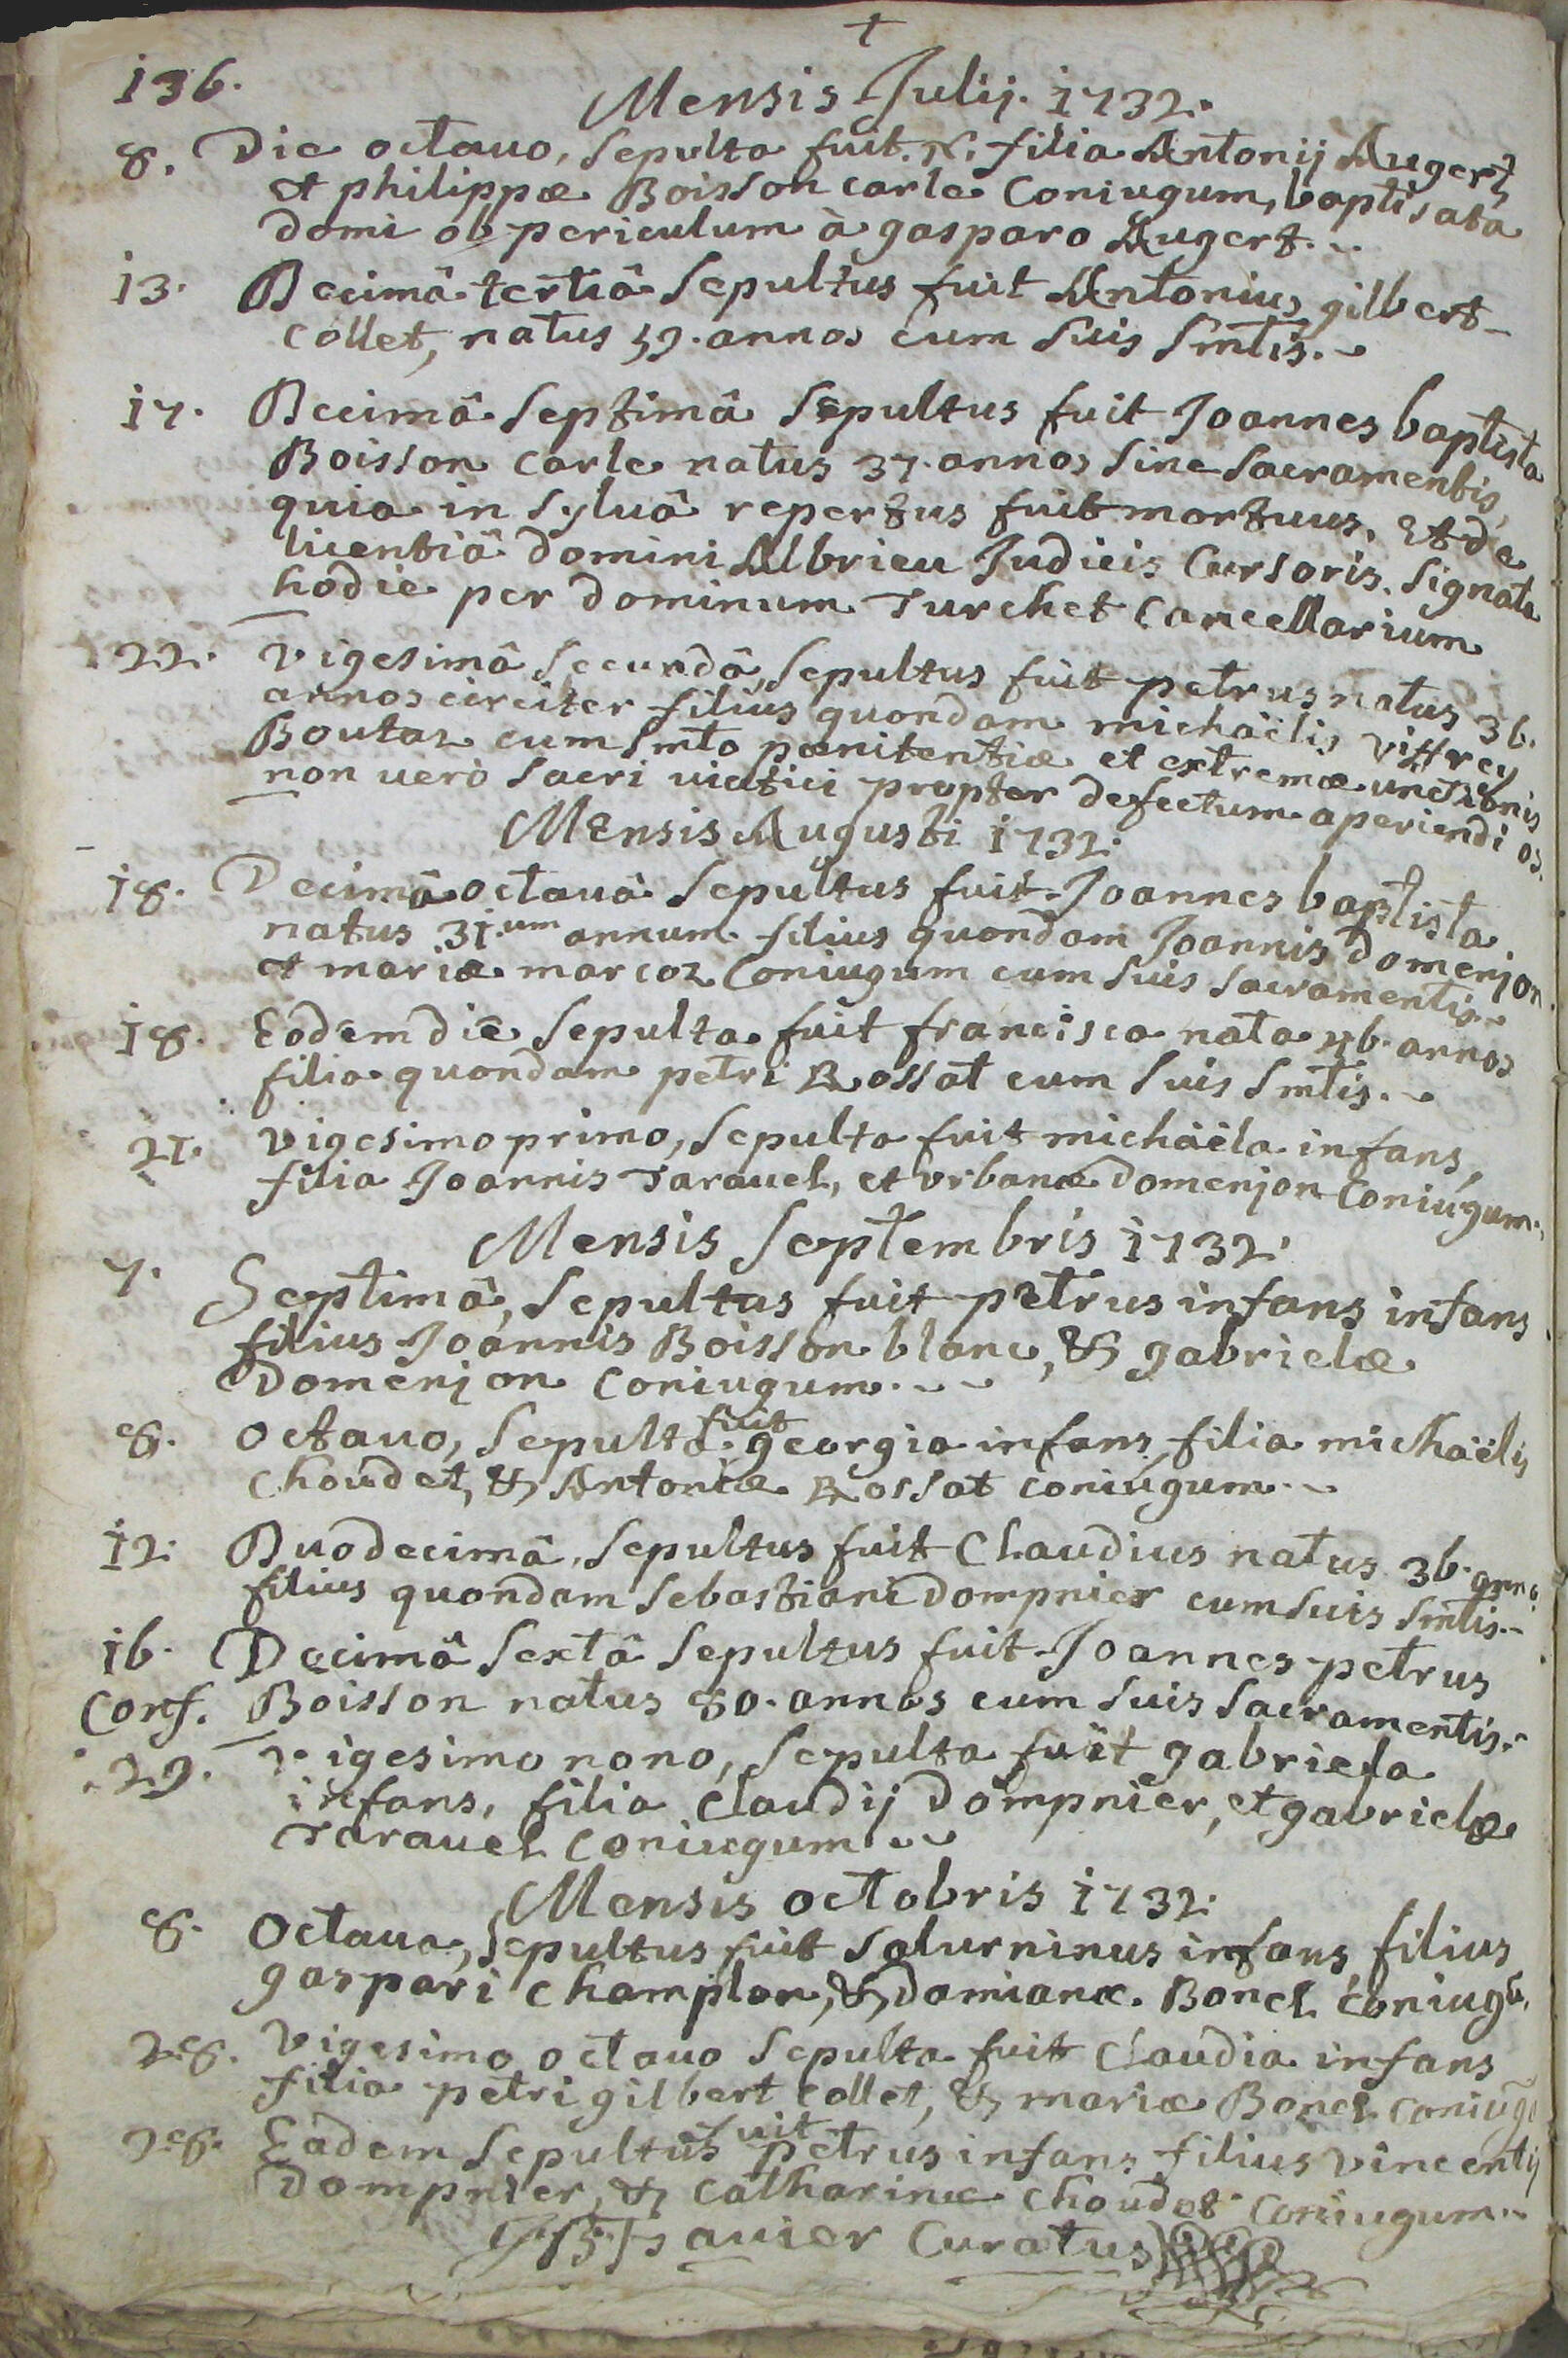 +
136.
Mensis Julij. 1732.
8. Die octauo, sepulta fuit. N. filia Antonij Augert,
et philippæ Boisson carle Coniugum, baptisata
domi ob periculum à gasparo Augert.
13. Decimâ tertiâ sepultus fuit Antonius gilbert-
collet, natus 59. annos cum suis smtis.
17. Decimâ septimâ sepultus fuit Joannes baptista
Boisson carle natus 37. annos sine sacramentis,
quia in syluâ repertus fuit mortuus. Et de
licentiâ domini Albrieu Judicis Cursoris. signatâ
hodie per dominum Turchet Cancellarium
22. Vigesimâ secundâ, sepultus fuit petrus natus 36.
annos circiter filius quondam michaëlis vittrey
Boutaz cum smto pænitentiæ et extremæ unctionis
non uerò sacri uiatici propter defectum aperiendi os.
Mensis Augusti 1732.
18. Decimâ octauâ sepultus fuit Joannes baptista
natus 31.um annum filius quondam Joannis domenjon
et mariæ marcoz Coniugum cum suis sacramentis.
18. Eodem die sepulta fuit francisca nata 46. annos
filia quondam petri Rossat cum suis smtis.
21. vigesimo primo, sepulta fuit michaëla infans,
filia Joannis Tarauel, et vrbanæ domenjon Coniugum.
Mensis Septembris 1732.
7. Septimâ, sepultus fuit petrus infans infans
filius Joannis Boisson blanc, & gabrielæ
Domenjon Coniugum.
8. octauo, sepulta fuit georgia infans filia michaëlis
choudet, & Antoniæ Rossat coniugum.
12. Duodecimâ, sepultus fuit Claudius natus 36. anno
filius quondam sebastiani dompnier cum suis smtis.
16. Decimâ sextâ sepultus fuit Joannes petrus
Conf. Boisson natus 80. annos cum suis sacramentis.
29. vigesimo nono, sepulta fuit gabriela
infans, filia claudij dompnier, et gabrielæ
Tarauel Coniugum.
Mensis octobris 1732.
8. Octaua, sepultus fuit saturninus infans, filius
gaspari champlon, & damianæ. Bonel coniugũ.
28. Vigesimo octauo sepulta fuit Claudia infans
filia petri gilbert collet, & mariæ Bonel coniugũ
28. Eadem sepultus fuit petrus infans filius vincentij
Dompnier, & catharinæ choudet coniugum.
auier Curatus